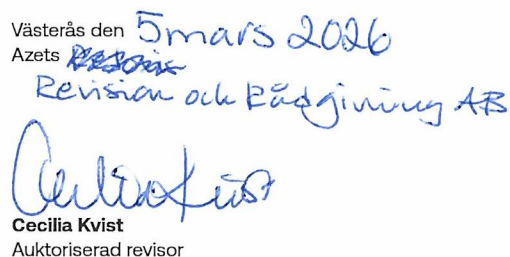 Västerås den 5 mars 2026
Azets
Revision och Rådgivning AB
Cecilia Kvist
Cecilia Kvist
Auktoriserad revisor